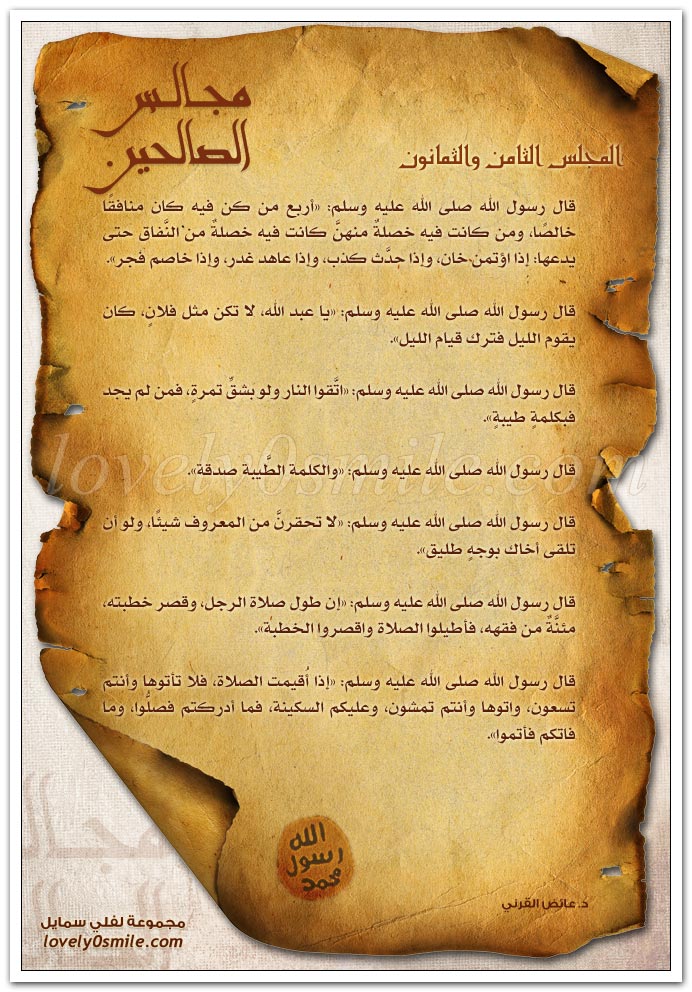 مجالس
الصالحين
المجلس الثامن والثمانون
قال رسول الله صلى الله عليه وسلم: «أربع من كن فيه كان منافقًا
خالصًا، ومن كانت فيه خصلةٌ منهنَّ كانت فيه خصلةٌ من النَّفاق حتى
يدعها: إذا اؤتمن خان، وإذا حدَّث كذب، وإذا عاهد غدر، وإذا خاصم فجر».
قال رسول الله صلى الله عليه وسلم: «يا عبد الله، لا تكن مثل فلانٍ، كان
يقوم الليل فترك قيام الليل».
قال رسول الله صلى الله عليه وسلم: «اتَّقوا النار ولو بشقِّ تمرةٍ، فمن لم يجد
فبكلمةٍ طيبةٍ».
قال رسول الله صلى الله عليه وسلم: «والكلمة الطَّيبة صدقة».
قال رسول الله صلى الله عليه وسلم: «لا تحقرنَّ من المعروف شيئًا، ولو أن
تلقى أخاك بوجهٍ طليق».
قال رسول الله صلى الله عليه وسلم: «إن طول صلاة الرجل، وقصر خطبته،
مئنَّةٌ من فقهه، فأطيلوا الصلاة واقصروا الخطبة».
قال رسول الله صلى الله عليه وسلم: «إذا أُقيمت الصلاة، فلا تأتوها وأنتم
تسعون، واتوها وأنتم تمشون، وعليكم السكينة، فما أدركتم فصلُّوا، وما
فاتكم فأتموا».
الله
رسول
محمد
د.عائض القرني
مجموعة لفلي سمايل
lovely0smile.com
lovely0smile.com
مجالس
الصالحين